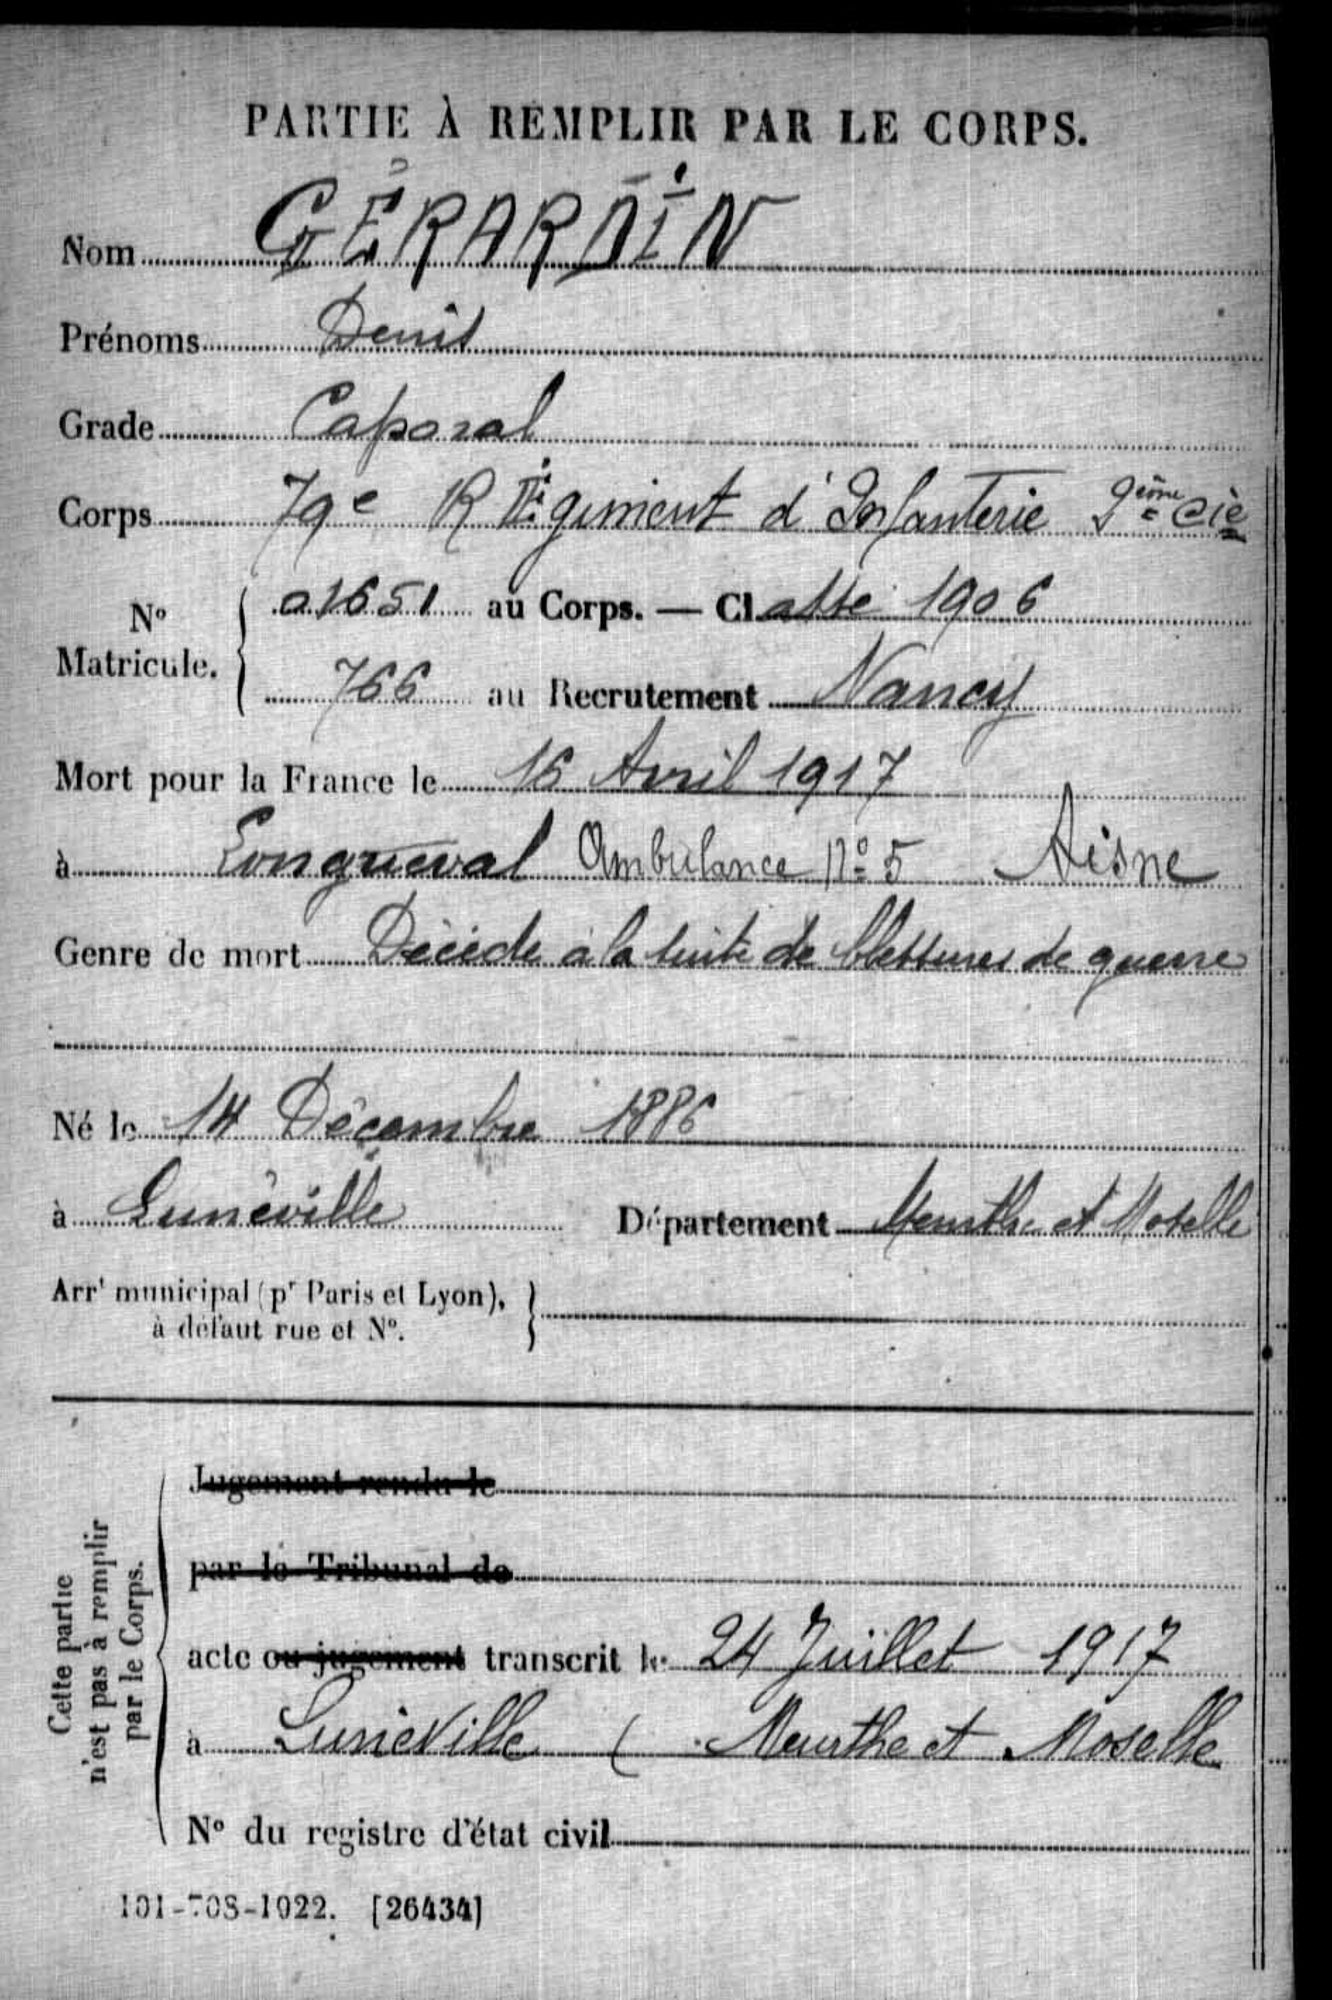 PARTIE À REMPLIR PAR LE CORPS.
Nom GÉRARDIN
Prénoms Denis
Grade Caporal
Corps 79e Régiment d'Infanterie 9ème Cie
No Matricule. 01651 au Corps. — Classe 1906
766 au Recrutement Nancy
Mort pour la France le 16 Avril 1917
à Longueval Ambulance No 5 Aisne
Genre de mort Décédé à la suite de blessures de guerre
Né le 14 Décembre 1886
à Lunéville Département Meurthe et Moselle
Arrt municipal (pr Paris et Lyon),
à défaut rue et No.
Cette partie
n'est pas à remplir
par le Corps.
Jugement rendu le
par le Tribunal de
acte ou jugement transcrit le 24 Juillet 1917
à Lunéville ( Meurthe et Moselle
No du registre d'état civil
101-708-1922. [26434]